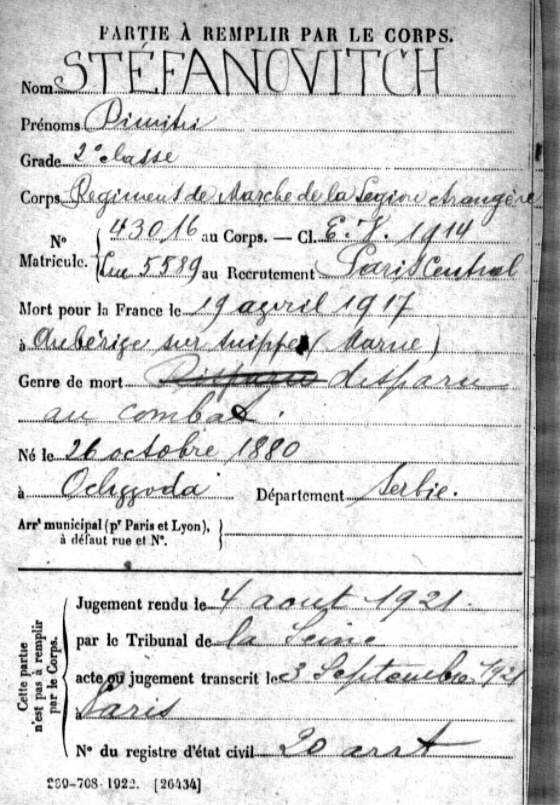 PARTIE À REMPLIR PAR LE CORPS.
Nom STÉFANOVITCH
Prénoms Dimitri
Grade 2e classe
Corps Regiment de Marche de la Legion étrangère
N° Matricule. 43016 au Corps. — Cl. E.V. 1914
5589 au Recrutement Paris Central
Mort pour la France le 19 avril 1917
à Aubérive sur suippe (Marne)
Genre de mort Disparu disparu
au combat.
Né le 26 octobre 1880
à Département Serbie.
Arrt municipal (pr Paris et Lyon),
à défaut rue et N°.
Cette partie n'est pas à remplir par le Corps.
Jugement rendu le 4 aout 1921.
par le Tribunal de la Seine
acte ou jugement transcrit le 3 Septembre 1921
à Paris
N° du registre d'état civil 20 arrt
269-708-1922. [26434]